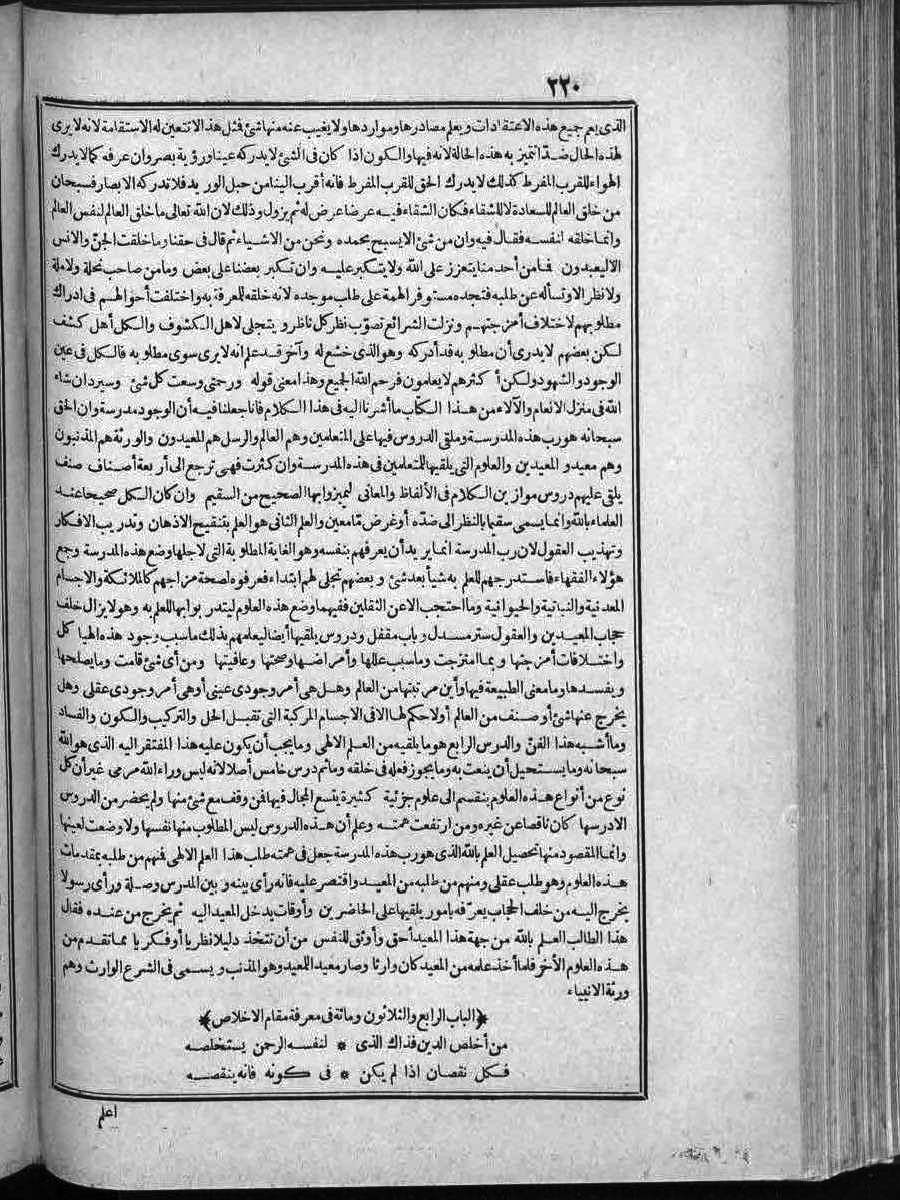 ٢٢٠
الذى يعم جميع هذه الاعتقادات ويعلم مصادرها ومواردها ولا يغيب عنه منها شئ فمثل هذا لا تتعين له الاستقامة لانه لا يرى
لهذه الحال ضدّا تتميز به هذه الحالة لانه فيها والكون اذا كان فى الشئ لا يدركه عينا ورؤية بصر وان عرفه كما لا يدرك
الهواء للقرب المفرط كذلك لا يدرك الحق للقرب المفرط فانه أقرب الينا من حبل الوريد فلا تدركه الابصار فسبحان
من خلق العالم للسعادة لا للشقاء فكان الشقاء فيه عرضا عرض له ثم يزول وذلك لان الله تعالى ما خلق العالم لنفس العالم
وانما خلقه لنفسه فقال فيه وان من شئ الا يسبح بحمده ونحن من الاشياء ثم قال فى حقنا وما خلقت الجنّ والانس
الا ليعبدون فما من أحد منا يتعزز على الله ولا يتكبر عليه وان تكبر بعضنا على بعض وما من صاحب نحلة ولا ملة
ولا نظر الا وتسأله عن طلبه فتجده مستوفر الهمة على طلب موجده لانه خلقه للمعرفة به واختلفت أحوالهم فى ادراك
مطلوبهم لاختلاف أمزجتهم ونزلت الشرائع تصوّب نظر كل ناظر ويتجلى لاهل الكشوف والكل أهل كشف
لكن بعضهم لا يدرى أن مطلوبه قد أدركه وهو الذى خشع له وآخر قد علم انه لا يرى سوى مطلوبه فالكل فى عين
الوجود والشهود ولكن أكثرهم لا يعلمون فرحم الله الجميع وهذا معنى قوله ورحمتى وسعت كل شئ وسيرد ان شاء
الله فى منزل الانعام والآلاء من هذا الكتاب ما أشرنا اليه فى هذا الكلام فانا جعلنا فيه أن الوجود مدرسة وان الحق
سبحانه هو رب هذه المدرسة وملقى الدروس فيها على المتعلمين وهم العالم والرسل هم المعيدون والورثة هم المذنبون
وهم معيدو المعيدين والعلوم التى يلقيها للمتعلمين فى هذه المدرسة وان كثرت فهى ترجع الى أربعة أصناف صنف
يلقى عليهم دروس موازين الكلام فى الألفاظ والمعانى ليميزوا بها الصحيح من السقيم وان كان الكل صحيحا عند
العلماء بالله وانما يسمى سقيما بالنظر الى ضدّه أو غرض ما معين والعلم الثانى هو العلم بتنقيح الاذهان وتدريب الافكار
وتهذيب العقول لان رب المدرسة انما يريد أن يعرفهم بنفسه وهو الغاية المطلوبة التى لاجلها وضع هذه المدرسة وجمع
هؤلاء الفقهاء فاستدرجهم للعلم به شيأ بعد شئ وبعضهم تجلى لهم ابتداء فعرفوه لصحة مزاجهم كالملائكة والاجسام
المعدنية والنباتية والحيوانية وما احتجب الا عن الثقلين ففيهما وضع هذه العلوم ليتدربوا بها للعلم به وهو لا يزال خلف
حجاب المعيدين والعقول ستر مسدل وباب مقفل ودروس يلقيها أيضا ليعلمهم بذلك ما سبب وجود هذه الهياكل
واختلافات أمزجتها وبما امتزجت وما سبب عللها وأمراضها وصحتها وعافيتها ومن أى شئ قامت وما يصلحها
ويفسدها وما معنى الطبيعة فيها وأين مرتبتها من العالم وهل هى أمر وجودى عينى أو هى أمر وجودى عقلى وهل
يخرج عنها شئ أو صنف من العالم أولا حكم لها الا فى الاجسام المركبة التى تقبل الحل والتركيب والكون والفساد
وما أشبه هذا الفنّ والدرس الرابع هو ما يلقيه من العلم الالهى وما يجب أن يكون عليه هذا المفتقر اليه الذى هو الله
سبحانه وما يستحيل أن ينعت به وما يجوز فعله فى خلقه وما ثم درس خامس أصلا لانه ليس وراء الله مرمى غير أن كل
نوع من أنواع هذه العلوم ينقسم الى علوم جزئية كثيرة يتسع المجال فيها فمن وقف مع شئ منها ولم يحضر من الدروس
الا درسها كان ناقصا عن غيره ومن ارتفعت همته وعلم أن هذه الدروس ليس المطلوب منها نفسها ولا وضعت لعينها
وانما المقصود منها تحصيل العلم بالله الذى هو رب هذه المدرسة جعل فى همته طلب هذا العلم الالهى فمنهم من طلبه بمقدمات
هذه العلوم وهو طلب عقلى ومنهم من طلبه من المعيد واقتصر عليه فانه رأى بينه وبين المدرس وصلة ورأى رسولا
يخرج اليه من خلف الحجاب يعرّفه بامور يلقيها على الحاضرين وأوقات يدخل المعيد اليه ثم يخرج من عنده فقال
هذا الطالب العلم بالله من جهة هذا المعيد أحق وأوثق للنفس من أن نتخذ دليلا نظريا أو فكريا مما تقدم من
هذه العلوم الأخر فلما أخذ علمه من المعيد كان وارثا وصار معيد المعيد وهو المذنب ويسمى فى الشرع الوارث وهم
ورثة الانبياء
﴿الباب الرابع والثلاثون ومائة فى معرفة مقام الاخلاص﴾
من أخلص الدين فذاك الذى * لنفسه الرحمن يستخلصه
فكل نقصان اذا لم يكن * فى كونه فانه ينقصه
اعلم